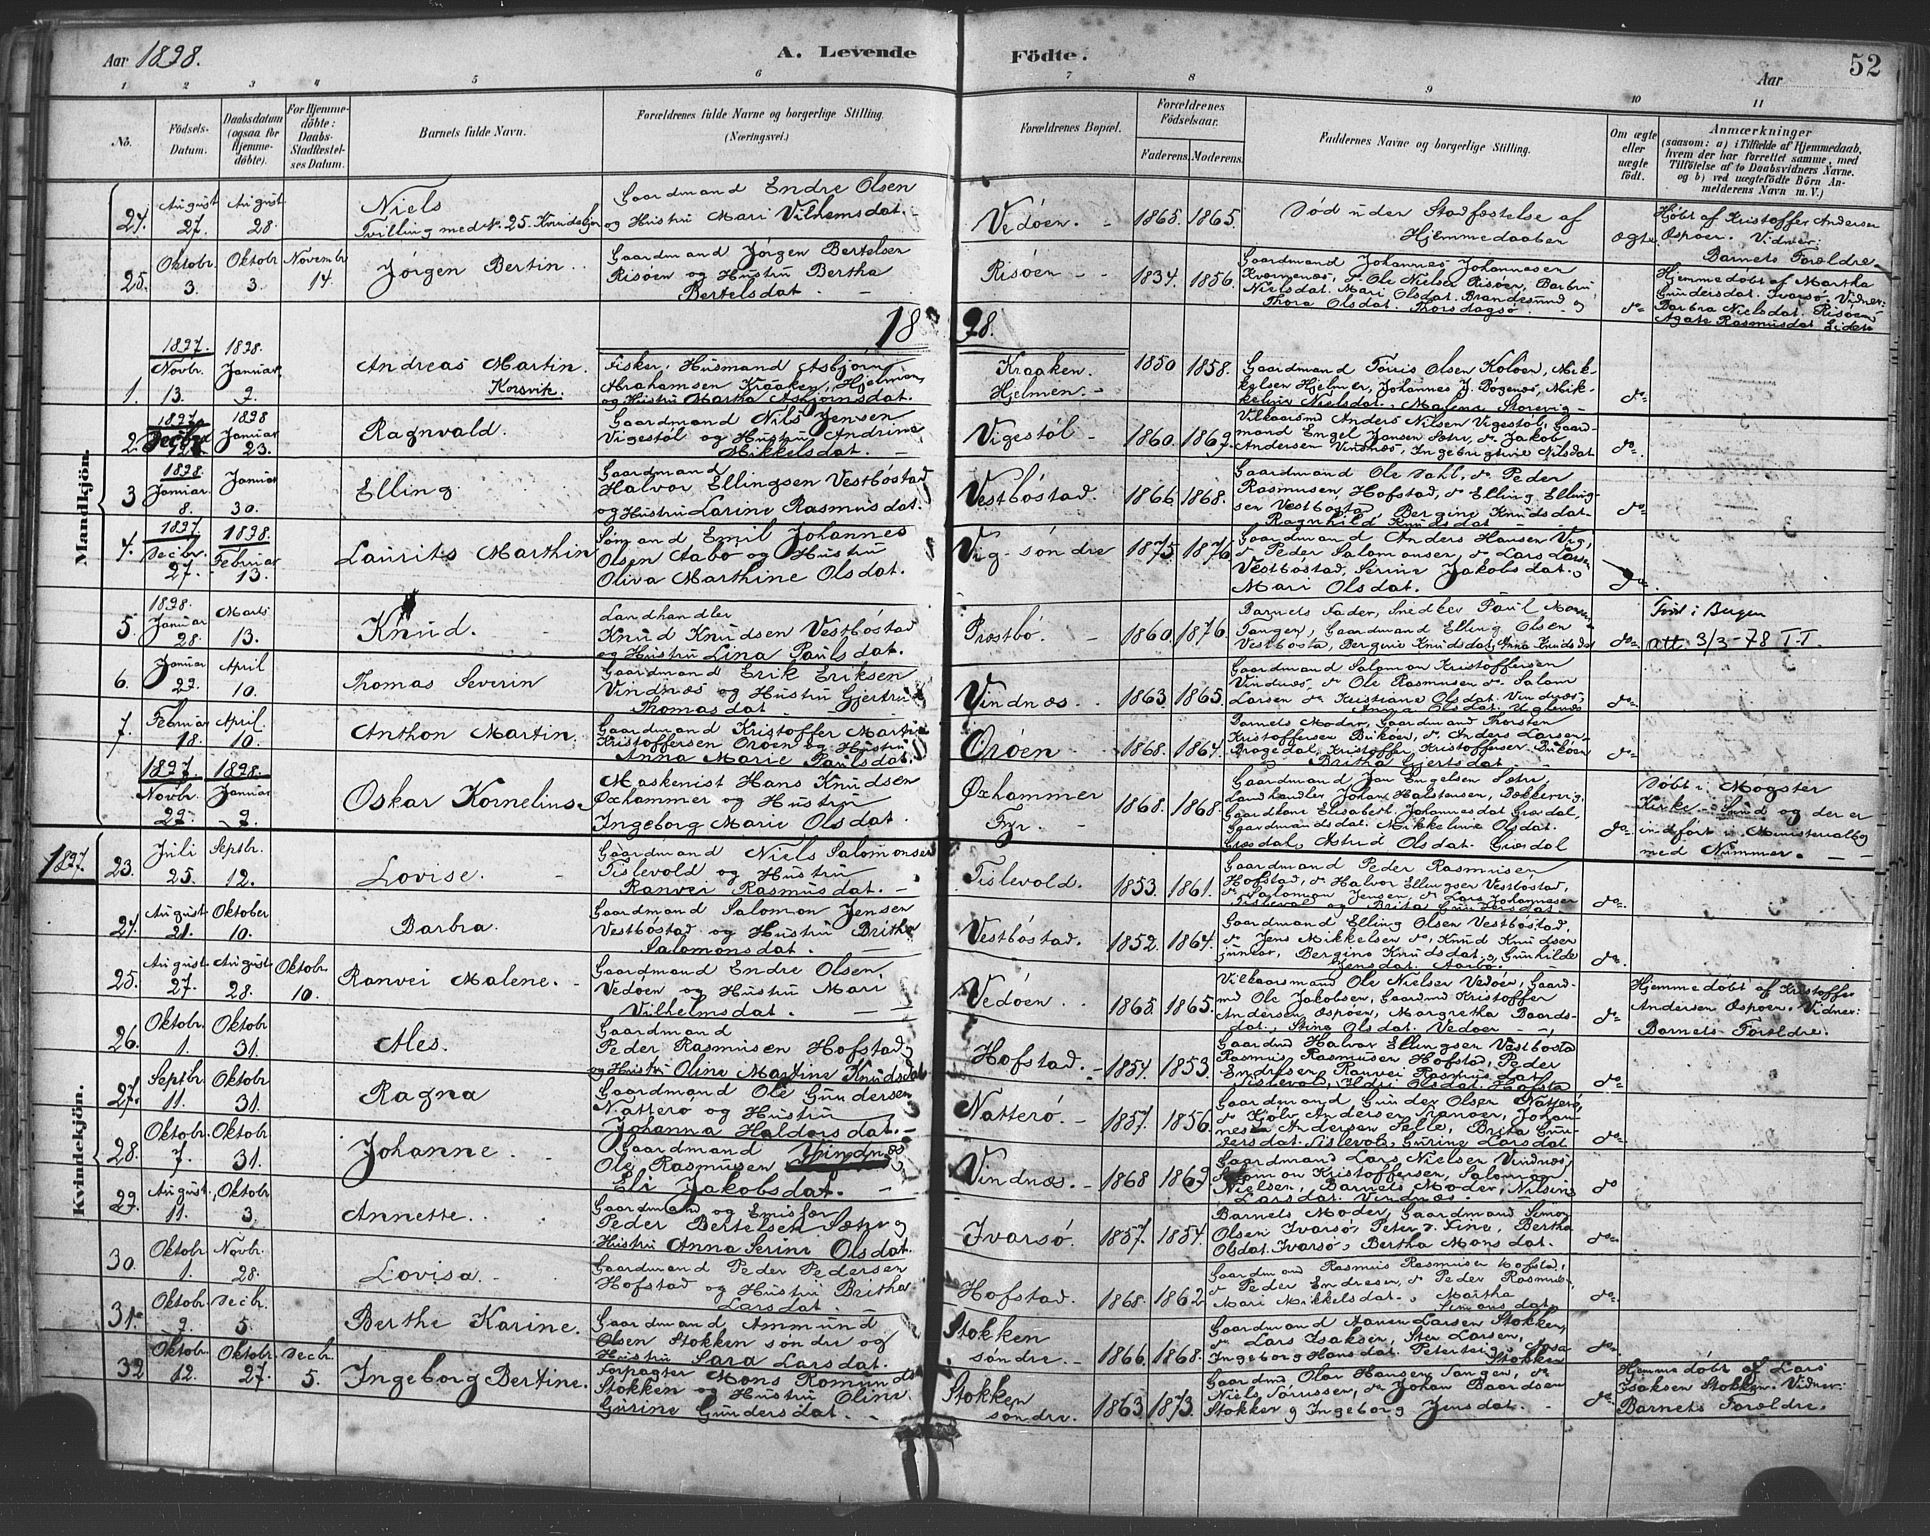 Aar 1898.
A. Levende
Födte.
Aar
52
1 2 3 4 5 6 7 8 9 10 11
No.
Födsels-
Datum.
Daabsdatum
(ogsaa for
Hjemme-
döbte).
For Hjemme-
döbte:
Daabs-
Stadfæstel-
ses Datum.
Barnets fulde Navn.
Forældrenes fulde Navne og borgerlige Stilling.
(Næringsvei.)
Forældrenes Bopæl.
Forældrenes
Födselsaar.
Faderens. Moderens.
Faddernes Navne og borgerlige Stilling.
Om ægte
eller
uægte
født.
Anmærkninger
(saasom: a) i Tilfælde af Hjemmedaab,
hvem der har forrettet samme, med
Tilföielse af to Daabsvidners Navne.
og b) ved uægtefödte Börn An-
melderens Navn m. V.)
Mandkjön.
24. August 27. August 28. Niels
Tvilling med No. 25. Kvindekjøn
Gaardmand Endre Olsen
og Hustru Mari Vilhemsdat.
Vedöen. 1865. 1865.
Död uden Stadfæstelse af
Hjemmedaaben
ægte.
Hjøbt af Kristoffer Andersen
Ospöen. Vidner:
Barnets Forældre.
25. Oktobr. 3. Oktobr 3. Novembr 14. Jørgen Bertin.
Gaardmand Jørgen Bertelsen
Risöen og Hustru Bertha
Bertelsdat.
Risöen. 1834. 1856.
Gaardmand Johannes Johannesen
Kvernenæs, do Ole Nielsen Risöen, Barbru
Nielsdat. Mari Olsdat. Brandesund og
Thora Olsdat. Thorsdagsö.
do
Hjemmedøbt af Martha
Gundersdat. Ivarsö. Vidner:
Barbra Nielsdat. Risöen
Agate Rasmusdat. Liden
1898.
1. 1897. Novbr. 13. 1898. Januar 9. Andreas Martin.
Korsvik.
Fisker, Husmand Asbjørn
Abrahamsen Kraaken, Hjelmen,
og Hustru Martha Asbjørnsdat.
Kraaken.
Hjelmen. 1850 1858.
Gaardmand Tøris Olsen Kolöen, Mik-
kelsen Hjelmen, Johannes J. Bögenæs, Mik-
keline Nielsdat., Malene Storevig
do
2. 1897. Decbr. 1898 Januar 23. Ragnvald.
Gaardmand Nils Jensen
Vigestöl og Hustru Andrine
Mikkelsdat.
Vigestöl 1860. 1869.
Vilkaarsmd Anders Nilsen Vigestöl, Gaard-
mand Engel Jansen Sætr, do Jakob
Andersen Vindnæs, Ingebrigtine Nilsdat
do
3 1898 Januar. 8. Januar 30. Elling.
Gaardmand
Halvor Ellingsen Vestböstad
og Hustru Larine Rasmusdat.
Vestböstad. 1866. 1868.
Gaardmand Ole Dahl, do Peder
Rasmusen, Hofstad, do Elling Elling-
sen Vestbostad, Bergine Knudsdat.
Ragnhild Knudsdat
do
4. 1897 Decbr. 27. 1898. Februar 13. Laurits Marthin
Sömand Emil Johannes
Olsen Aabø og Hustru
Oliva Marthine Olsdat.
Vig söndre 1875. 1876.
Gaardmand Anders Hansen Vig,
do Peder Salomonsen, do Lars Larsen
Vestböstad, Serine Jakobsdat.
Mari Olsdat.
do
5. 1898. Januar 28. Marts 13. Knud.
Landhandler
Knud Knudsen Vestböstad
og Hustru Lina Paulsdat.
Præstbö. 1860. 1876.
Barnets Fader, Snedker Paul
Tangen, Gaardmand Elling Olsen
Vestbosta, Bergine Knudsdat, Anna Knudsdat
do
Född i Bergen
Att. 3/3-78 I.T.
6. Januar 29. April 10. Thomas Severin
Gaardmand Erik Eriksen
Vindnæs og Hustru Gjertrud
Thomasdat
Vindnæs. 1863. 1865.
Gaardmand Salomon Kristoffersen
Vindnæs, do Ole Rasmusen do Salom
Larsen do Kristiane Olsdat Vindnæs
Anna Olsdat. Uglenæs
do
7. Februar 18. April. 10. Anthon Martin.
Gaardmand Kristoffer Martin
Kristoffersen Oröen og Hustru
Anna Marie Paulsdat.
Oröen 1868. 1864.
Barnets Moder, Gaardmand Thorsten
Kristoffersen Buköen, do Anders Larsen
Kristoffer Kristoffersen Buköen
Britha Gjertsdat
do
1897 Novbr. 29. 1898. Januar 9. Oskar Kornelius
Maskenist Hans Knudsen
Øxhammer og Hustru
Ingeborg Marie Olsdat.
Øxhammer
Fyr. 1868. 1868.
Gaardmand Jan Engelsen Sætre
Landhandler Johan Halstensen, Bækkervig,
Gaardkone Elisabert Johannesdat Græsdal,
Gaardmandsdat. Mikkeline Olsdat.
Græsdal, Astrid Olsdat. Græsdal
do
Døbt i Mögster
Kirke Sund og der er
indført i Ministerialbog
med Nummer.
Kvindekjön.
1897.
23. Juli 25. Septbr. 12. Lovise.
Gaardmand Niels Salomonsen
Tislevold og Hustru
Ranvei Rasmusdat.
Tislevold. 1853. 1861.
Gaardmand Peder Rasmusen
Hofstad, do Halvor Ellingsen Vestbostad,
do Salomon Jensen, do Lars Johannesen
Tislevold og Brita Gundersdat
do
24. August 21. Oktober 10. Barbra.
Gaardmand Salomon Jensen
Vestbostad og Hustru Britha
Salomonsdat.
Vestböstad. 1852. 1864.
Gaardmand Elling Olsen Vestböstad,
do Jens Mikkelsen do, Knud Knudsen
Bergine Knudsdat. Gunhilde
Jensdat. Aarbo.
do
25. August 27. August 28. Oktobr 10. Ranvei Malene.
Gaardmand Endre Olsen
Vedöen og Hustru Mari
Vilhelmsdat.
Vedöen. 1865. 1865.
Vilkaarsmand Ole Nielsen Vedöen, Gaard-
md Ole Jakobsen, Gaardmd Kristoffer
Andersen Ospöen, Margretha Baards-
dat., Stina Olsdat. Vedöen
do
Hjemmedöbt af Kristoffer
Andersen Ospöen. Vidner:
Barnets Forældre.
26. Oktobr. 1. Oktobr. 31. Ales.
Gaardmand
Peder Rasmusen Hofstad
og Hustru Oline Martine Knudsdat
Hofstad. 1854. 1853.
Gaardmd Halvor Ellingsen Vestbosta
Rasmus Rasmusen Hofstad, Peder
Endresen Ranvei Rasmusdat
Tislevold, Ildri Olsdat. Hofsta
do
27. Septbr. 11. Oktobr 31. Ragna
Gaardmand Ole Gundersen
Natterö og Hustru
Johanna Haldorsdat.
Natterö. 1857. 1856.
Gaardmand Gunder Olsen Natterö,
do Andersen Johan-
nes Andersen Selle, Brita Gun-
dersdat. Tislevol, Gurine Larsdat
do
28. Oktobr 7. Oktobr 31. Johanne.
Gaardmand
Ole Rasmusen Vindnæs
Eli Jakobsdat.
Vindnæs. 1868 1869
Gaardmand Lars Nielsen Vindnæs,
Salomon Kristoffersen, Salomon
Nielsen, Barnets Moder, Nilsine
Larsdat. Vindnæs.
do
29. August. 11. Oktobr. 3. Annette.
Gaardmand og Emissær
Peder Bertelsen Sætre og
Hustru Anna Serine Olsdat.
Ivarsö. 1857. 1854.
Barnets Moder, Gaardmand Simon
Olsen Ivarsö, Peter do Bertha
Olsdat. Ivarsö, Bertha Monsdat.
do
30. Oktobr. 1. Novbr. 28. Lovisa.
Gaardmand Peder Pedersen
Hofstad og Hustru Britha
Larsdat.
Hofstad. 1868. 1862
Gaardmand Rasmus Rasmusen Hofstad,
do Peder Endresen, do Peder Rasmus-
Mari Mikkelsdat., Martha
Simonsdat.
do
31. Oktobr. 9. Decbr. 5. Berthe Karine.
Gaardmand Ammund
Olsen Stokken söndre og
Hustru Sara Larsdat.
Stokken
söndre. 1866. 1868.
Gaardmand Aanen Larsen Stokken,
do Lars Isaksen, Sten Larsen,
Ingeborg Hansdat.
Stokken
do
32 Oktobr. 12. Oktobr. 27. Decbr. 5. Ingeborg Bertine.
Forpagter Mons Romunds
Stokken og Hustru Oline
Gurine Gundersdat.
Stokken
söndre. 1863. 1873.
Gaardmd Olar Hansen Tangen, do
Niels Sørussen, do Johan Baardsen
Stokken og Ingeborg Jensdat.
do
Hjemmedöbt af Lars
Isaksen Stokken. Vidner:
Barnets Forældre.